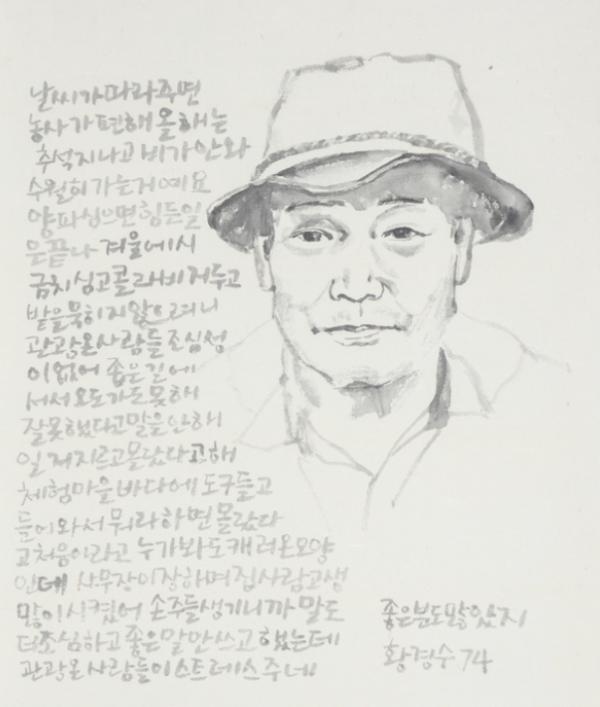 날씨가따라주면
농사가편해올해는
추석지나고비가안와
수월히가는거예요
양파심으면힘든일
은끝나겨울에시
금치심고콜라비저두고
밭을묵히지않으려니
관광온사람들조심성
이없어좁은길에
서서오도가도못해
잘못했다고말을안해
일저지르고몰랐다고해
체험마을바다에도구들고
들어와서뭐라하면몰랐다
고처음이라고누가봐도캐러온모양
인데사무장이장하며집사람고생
많이시켰어손주들생기니까말도
더조심하고좋은말만쓰고했는데
관광온사람들이스트레스주네
좋은분도많았지
황경수74